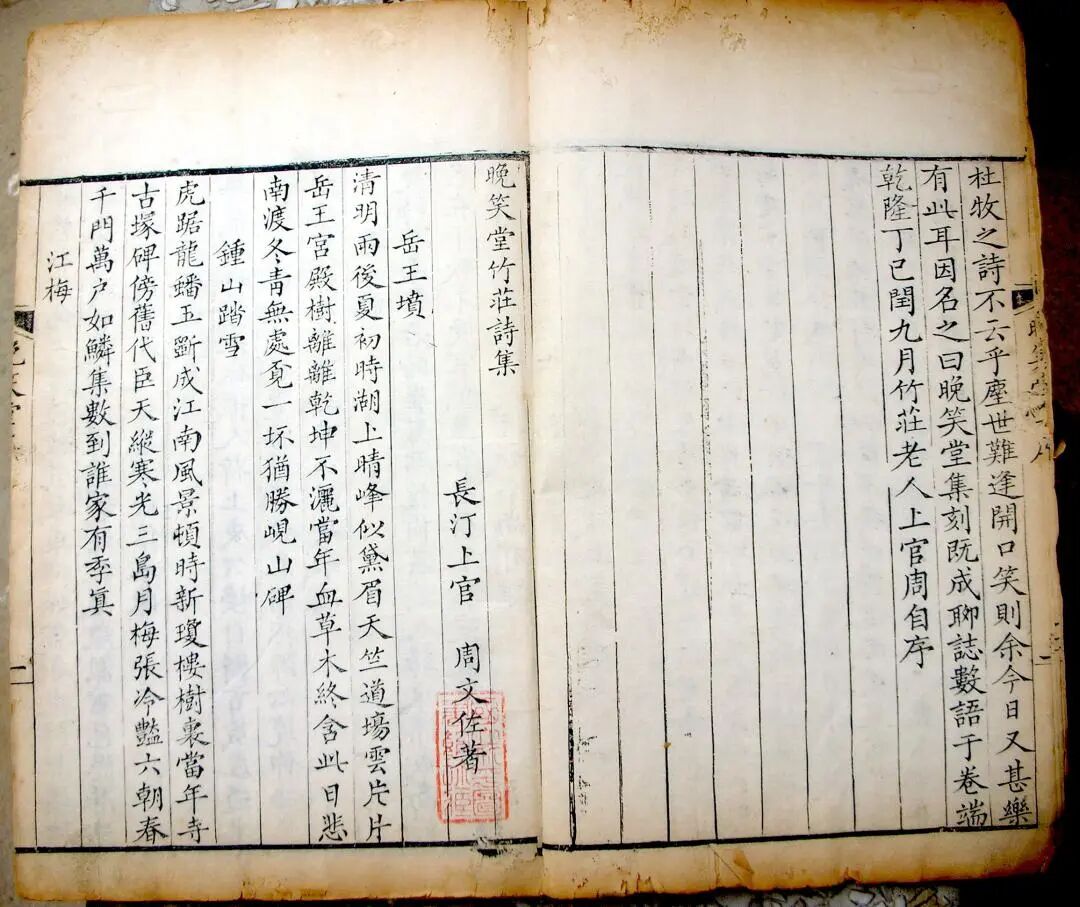 杜牧之詩不云乎塵世難逢開口笑則余今日又甚樂
有此耳因名之曰晚笑堂集刻既成聊誌數語于卷端
乾隆丁巳閏九月竹莊老人上官周自序
晚笑堂竹莊詩集
長汀上官 周文佐著
岳王墳
清明雨後夏初時湖上晴峰似黛眉天竺道場雲片片
岳王宮殿樹離離乾坤不灑當年血草木終含此日悲
南渡冬青無處覓一坏猶勝峴山碑
鍾山踏雪
虎踞龍蟠玉斲成江南風景頓時新瓊樓樹裏當年寺
古塚碑傍舊代臣天縱寒光三島月梅張冷豔六朝春
千門萬户如鱗集數到誰家有季真
江梅